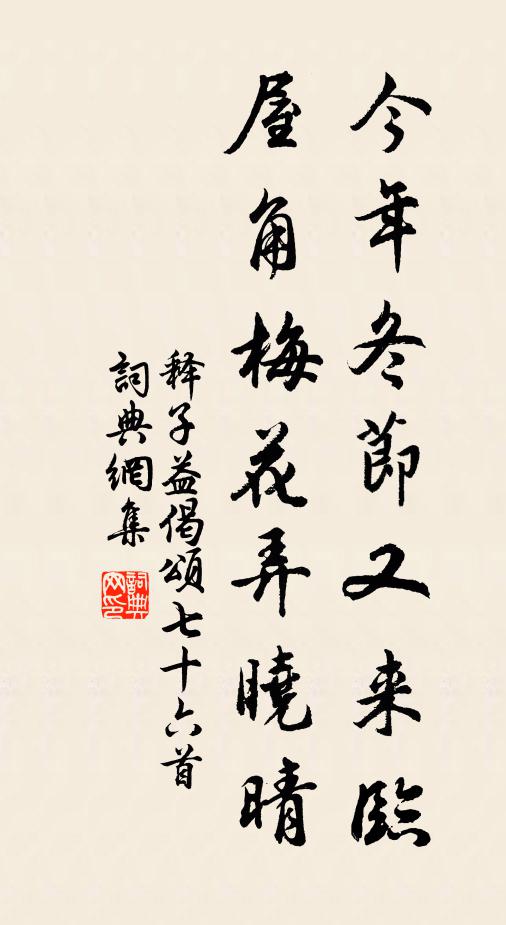 今年冬節又来臨
屋角梅花弄曉晴
释子益偈頌七十六首
詞典網集
詞典網印